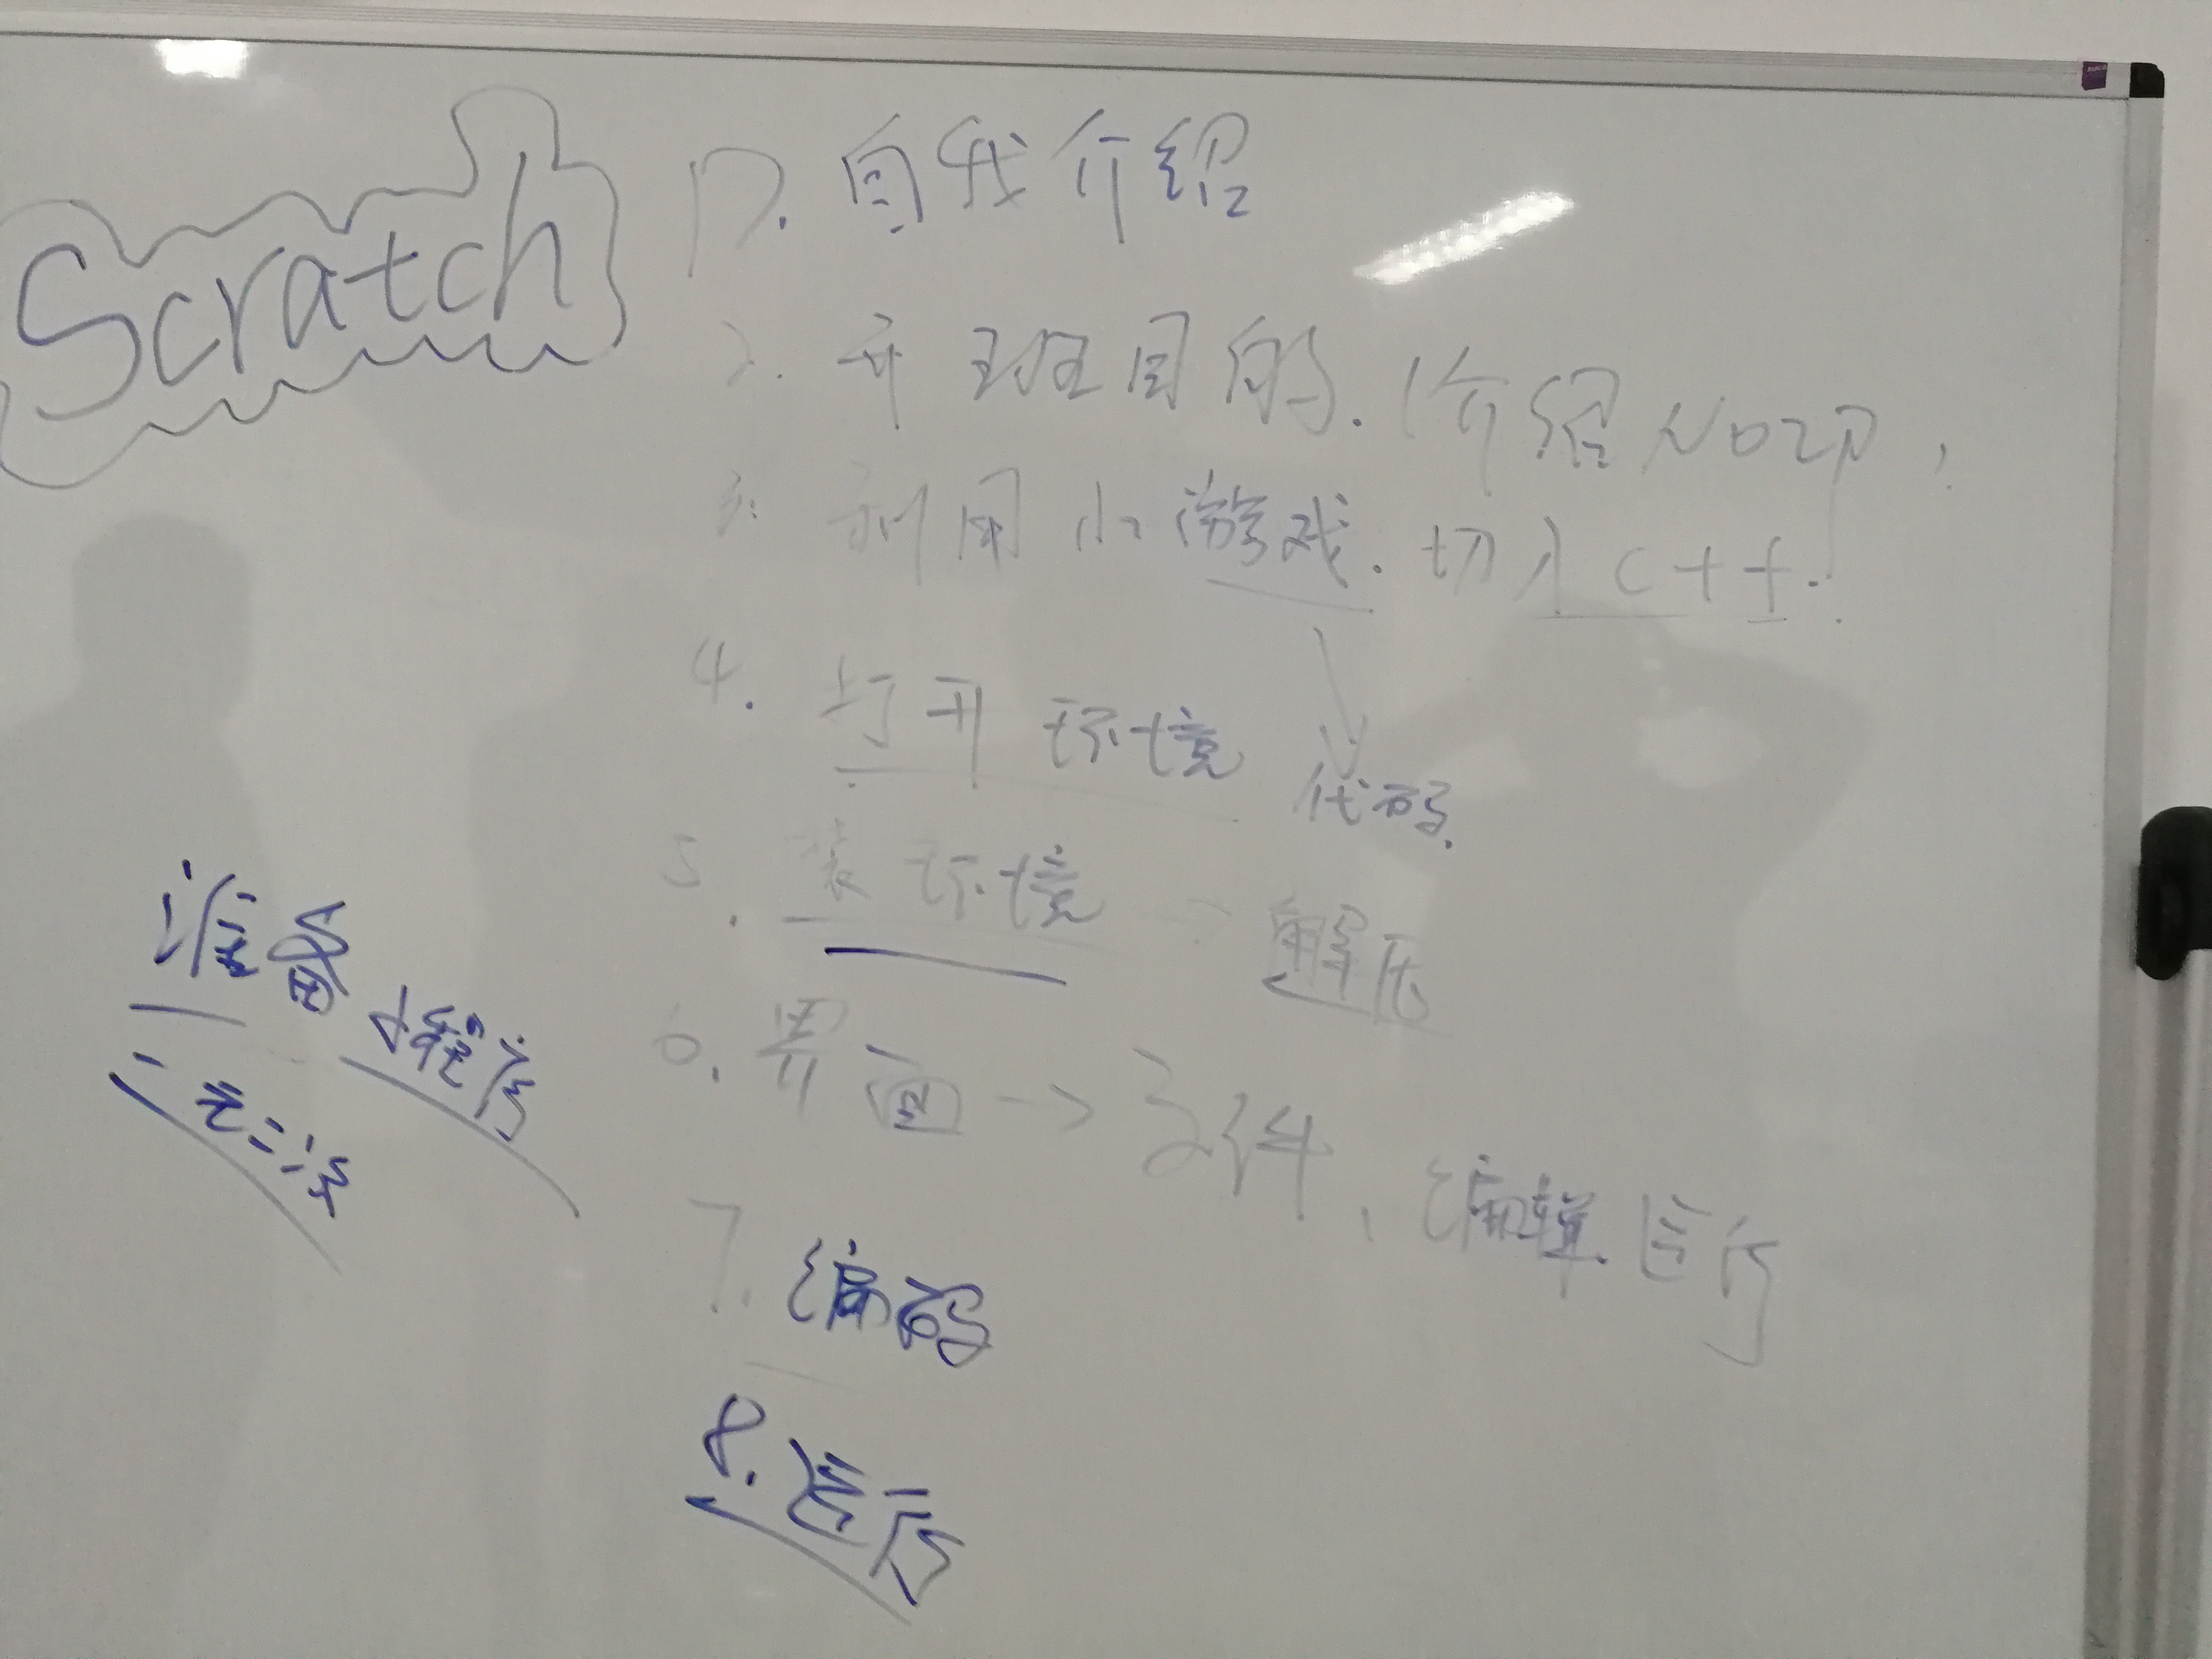 Scratch
1. 自我介绍
2. 开班目的. (介绍NOIP,
3. 利用小游戏. 切入C++.
4. 打开环境
代码.
5. 装环境 → 解压
6. 界面 → 文件、编辑 运行
7. 编码
8. 运行
准备 小程序